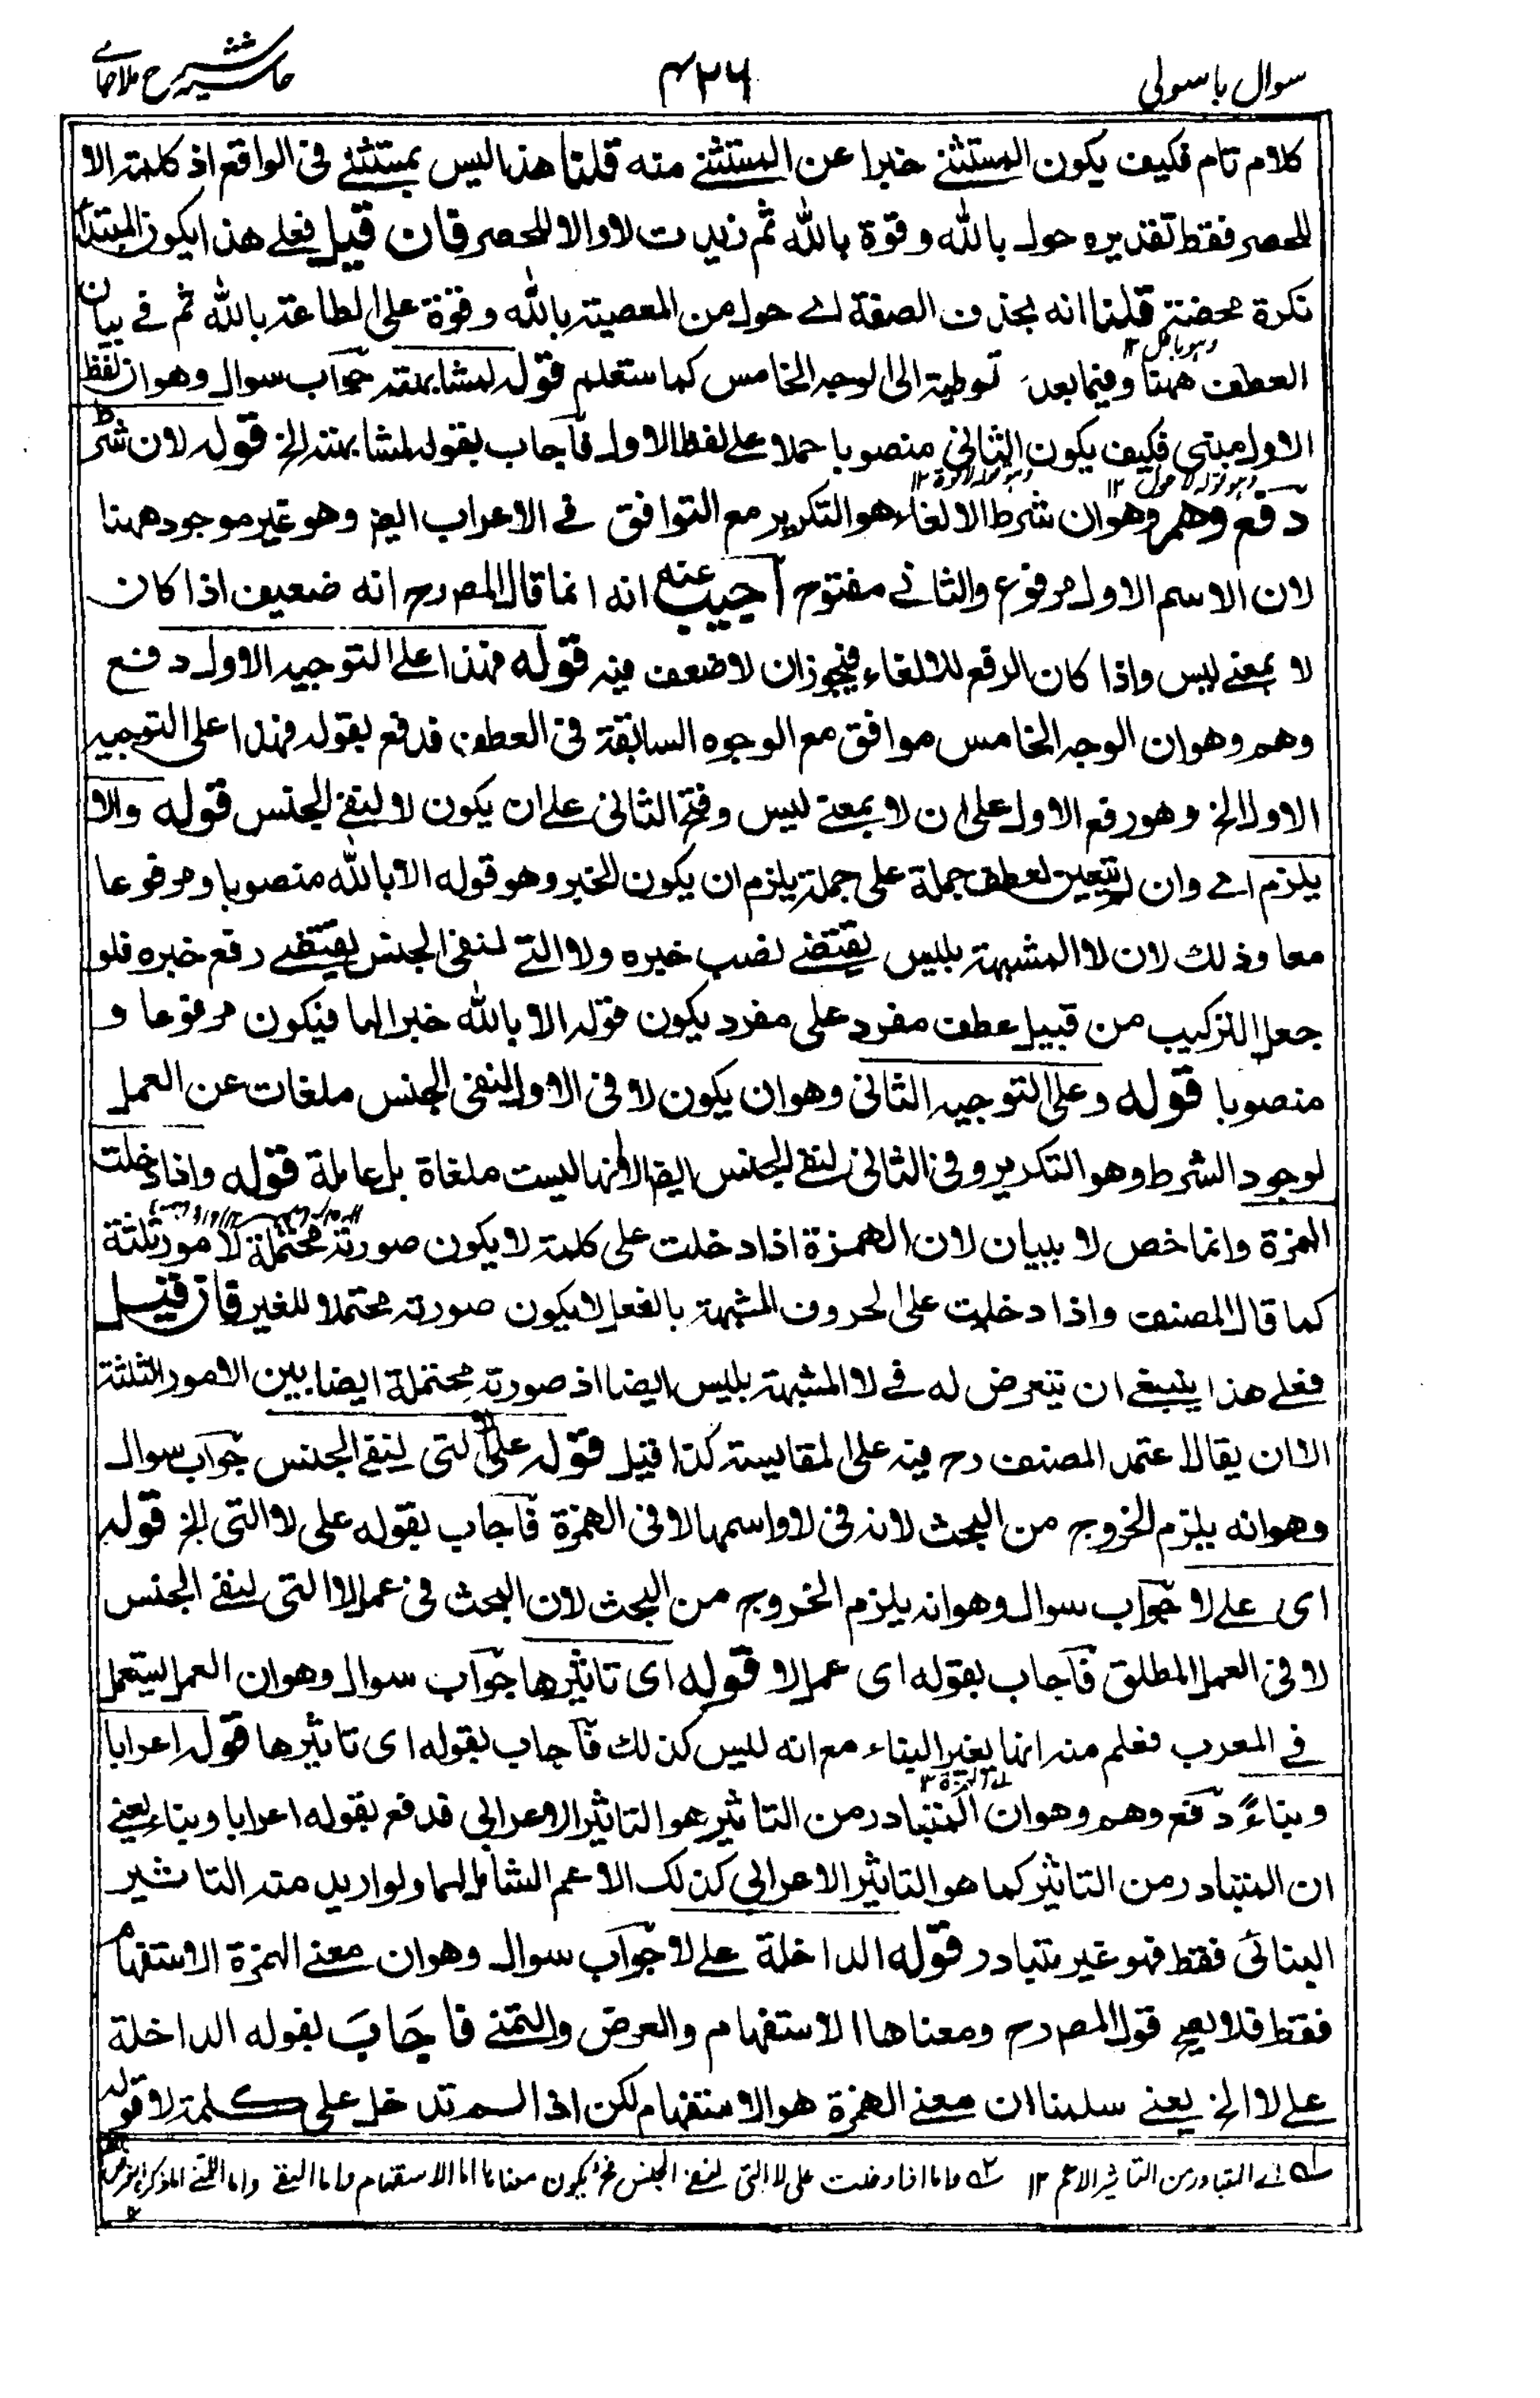 سوال باسولی
۴۲۶
حاشیه شرح ملاجامے
كلام تام فكيف يكون المستثنے خبرا عن المستثنے منه قلنا هذا ليس بمستثنے فى الواقع اذ كلمة الا
للحصر فقط تقديره حول بالله وقوة بالله ثم زيدت لا والا للحصر فان قيل فعلے هذا يكون المبتدأ
نكرة محضة قلنا انه بحذف الصفة اے حول من المعصية بالله وقوة على الطاعة بالله ثم فے بيان
العطف ههنا وفيما بعد توطية الى الوجه الخامس كما ستعلم قوله لمشابهته جواب سوال وهو ان لفظ
الاول مبنى فكيف يكون الثانى منصوبا حملا على لفظ الاول فاجاب بقوله لمشابهته الخ قوله لان شرط
دفع وهم وهو ان شرط الالغاء هو التكرير مع التوافق فے الاعراب ايضا وهو غير موجود ههنا
لان الاسم الاول مرفوع والثانے مفتوح اجيب عنه انه انما قال المصرح انه ضعيف اذا كان
لا بمعنے ليس واذا كان الرفع للالغاء فيجوز ان لا ضعف فيه قوله فهذا على التوجيه الاول دفع
وهم وهو ان الوجه الخامس موافق مع الوجوه السابقة فى العطف فدفع بقوله فهذا على التوجيه
الاول الخ وهو رفع الاول على ان لا بمعنے ليس وفتح الثانى على ان يكون لا لنفے الجنس قوله والا
يلزم اے وان لم يتعين لعطف جملة على جملة يلزم ان يكون الخبر وهو قوله الا بالله منصوبا ومرفوعا
معا وذلك لان لا المشبهة بليس يقتضے نصب خبره ولا التے لنفى الجنس يقتضے رفع خبره فلو
جعل التركيب من قبيل عطف مفرد على مفرد يكون قوله الا بالله خبرا لهما فيكون مرفوعا و
منصوبا قوله وعلى التوجيه الثانى وهو ان يكون لا فى الاول لنفى الجنس ملغات عن العمل
لوجود الشرط وهو التكرير وفى الثانى لنفے الجنس ايضا الا انها ليست ملغاة بل عاملة قوله واذا دخلت
الهمزة وانما خص لا ببيان لان الهمزة اذا دخلت على كلمة لا يكون صورته محتملة لامور ثلثة
كما قال المصنف واذا دخلت على الحروف المشبهة بالفعل لا يكون صورته محتملا للغير فان قيل
فعلے هذا ينبغے ان يتعرض له فے لا المشبهة بليس ايضا اذ صورته محتملة ايضا بين الامور الثلثة
الا ان يقال اعتمد المصنف رح فيه على المقايسة كذا قيل قوله على لا التى لنفے الجنس جواب سوال
وهو انه يلزم الخروج من البحث لانه فى لا واسمها لا فى الهمزة فاجاب بقوله على لا التى الخ قوله
اى علے لا جواب سوال وهو انه يلزم الخروج من البحث لان البحث فى عمل لا التى لنفے الجنس
لا فى العمل المطلق فاجاب بقوله اى عمل لا قوله اى تاثيرها جواب سوال وهو ان العمل يستعمل
فے المعرب فعلم منه انها بغير البناء مع انه ليس كذلك فاجاب بقوله اى تاثيرها قوله اعرابا
وبناءً دفع وهم وهو ان المتبادر من التاثير هو التاثير الاعرابى فدفع بقوله اعرابا وبناء يعنے
ان المتبادر من التاثير كما هو التاثير الاعرابى كذلك الاعم الشامل لهما ولو اريد منه التاثير
البنائى فقط فهو غير متبادر قوله الداخلة علے لا جواب سوال وهو ان معنے الهمزة الاستفهام
فقط فلا يصح قول المصرح ومعناها الاستفهام والعرض والتمنے فاجاب بقوله الداخلة
علے لا الخ يعنے سلمنا ان معنے الهمزة هو الاستفهام لكن اذا لم تدخل على كلمة لا قوله
له اے المتبادر من التاثير الاعم ۱۲ ۲ه واما اذا دخلت على لا التى لنفے الجنس فح يكون معناها اما الاستفهام واما النفے واما التمنے